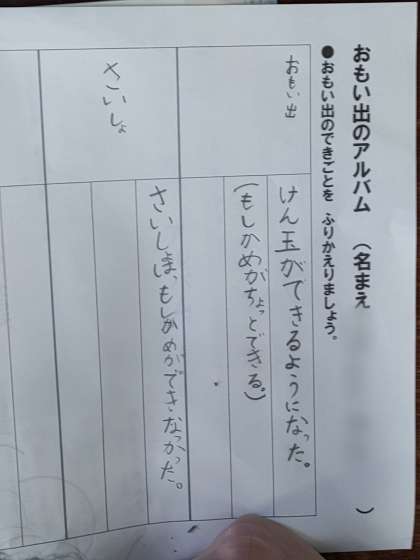 おもい出のアルバム （名まえ ）
●おもい出のできごとを ふりかえりましょう。
おもい出
けん玉ができるようになった。
(もしかめがちょっとできる。)
さいしょ
さいしょは、もしかめができなかった。